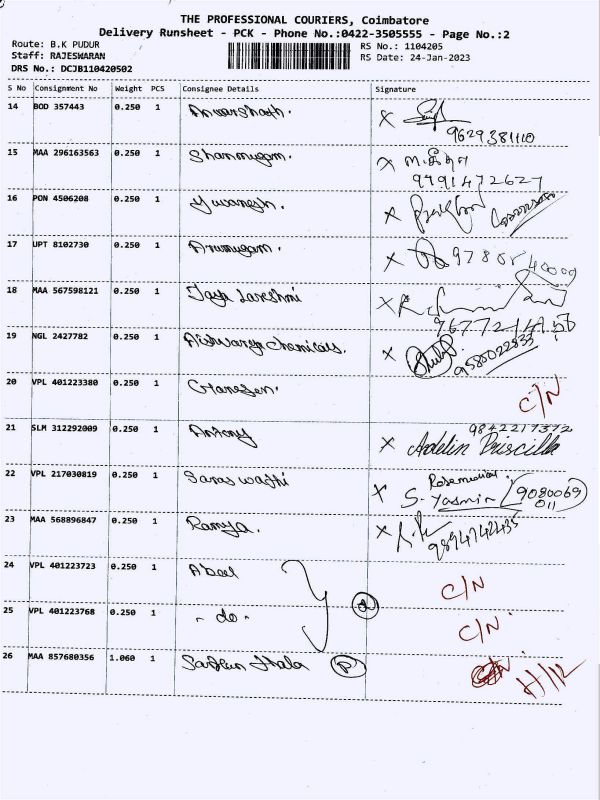 THE PROFESSIONAL COURIERS, Coimbatore
Delivery Runsheet - PCK - Phone No.:0422-3505555 - Page No.:2
Route: B.K PUDUR
RS No.: 1104205
Staff: RAJESWARAN
RS Date: 24-Jan-2023
DRS No.: DCJB110420502
S No Consignment No Weight PCS Consignee Details Signature
14 BOD 357443 0.250 1
9629381110
15 MAA 296163563 0.250 1 Shanmugam.
9791472627
16 PON 4506208 0.250 1 Yuvanesh.
17 UPT 8102730 0.250 1 Arumugam.
18 MAA 567598121 0.250 1 Jaya Lakshmi
19 NGL 2427782 0.250 1 Aishwarya Chemicals.
9580022833
20 VPL 401223380 0.250 1 Ganesan. C/N
21 SLM 312292009 0.250 1 Antony 9842217372
Ardelin Priscilla
22 VPL 217030819 0.250 1 Saraswathi
S. Yasmin 9080069
011
23 MAA 568896847 0.250 1 Ramya.
9894742435
24 VPL 401223723 0.250 1 C/N
25 VPL 401223768 0.250 1 - do - C/N
26 MAA 857680356 1.060 1 P